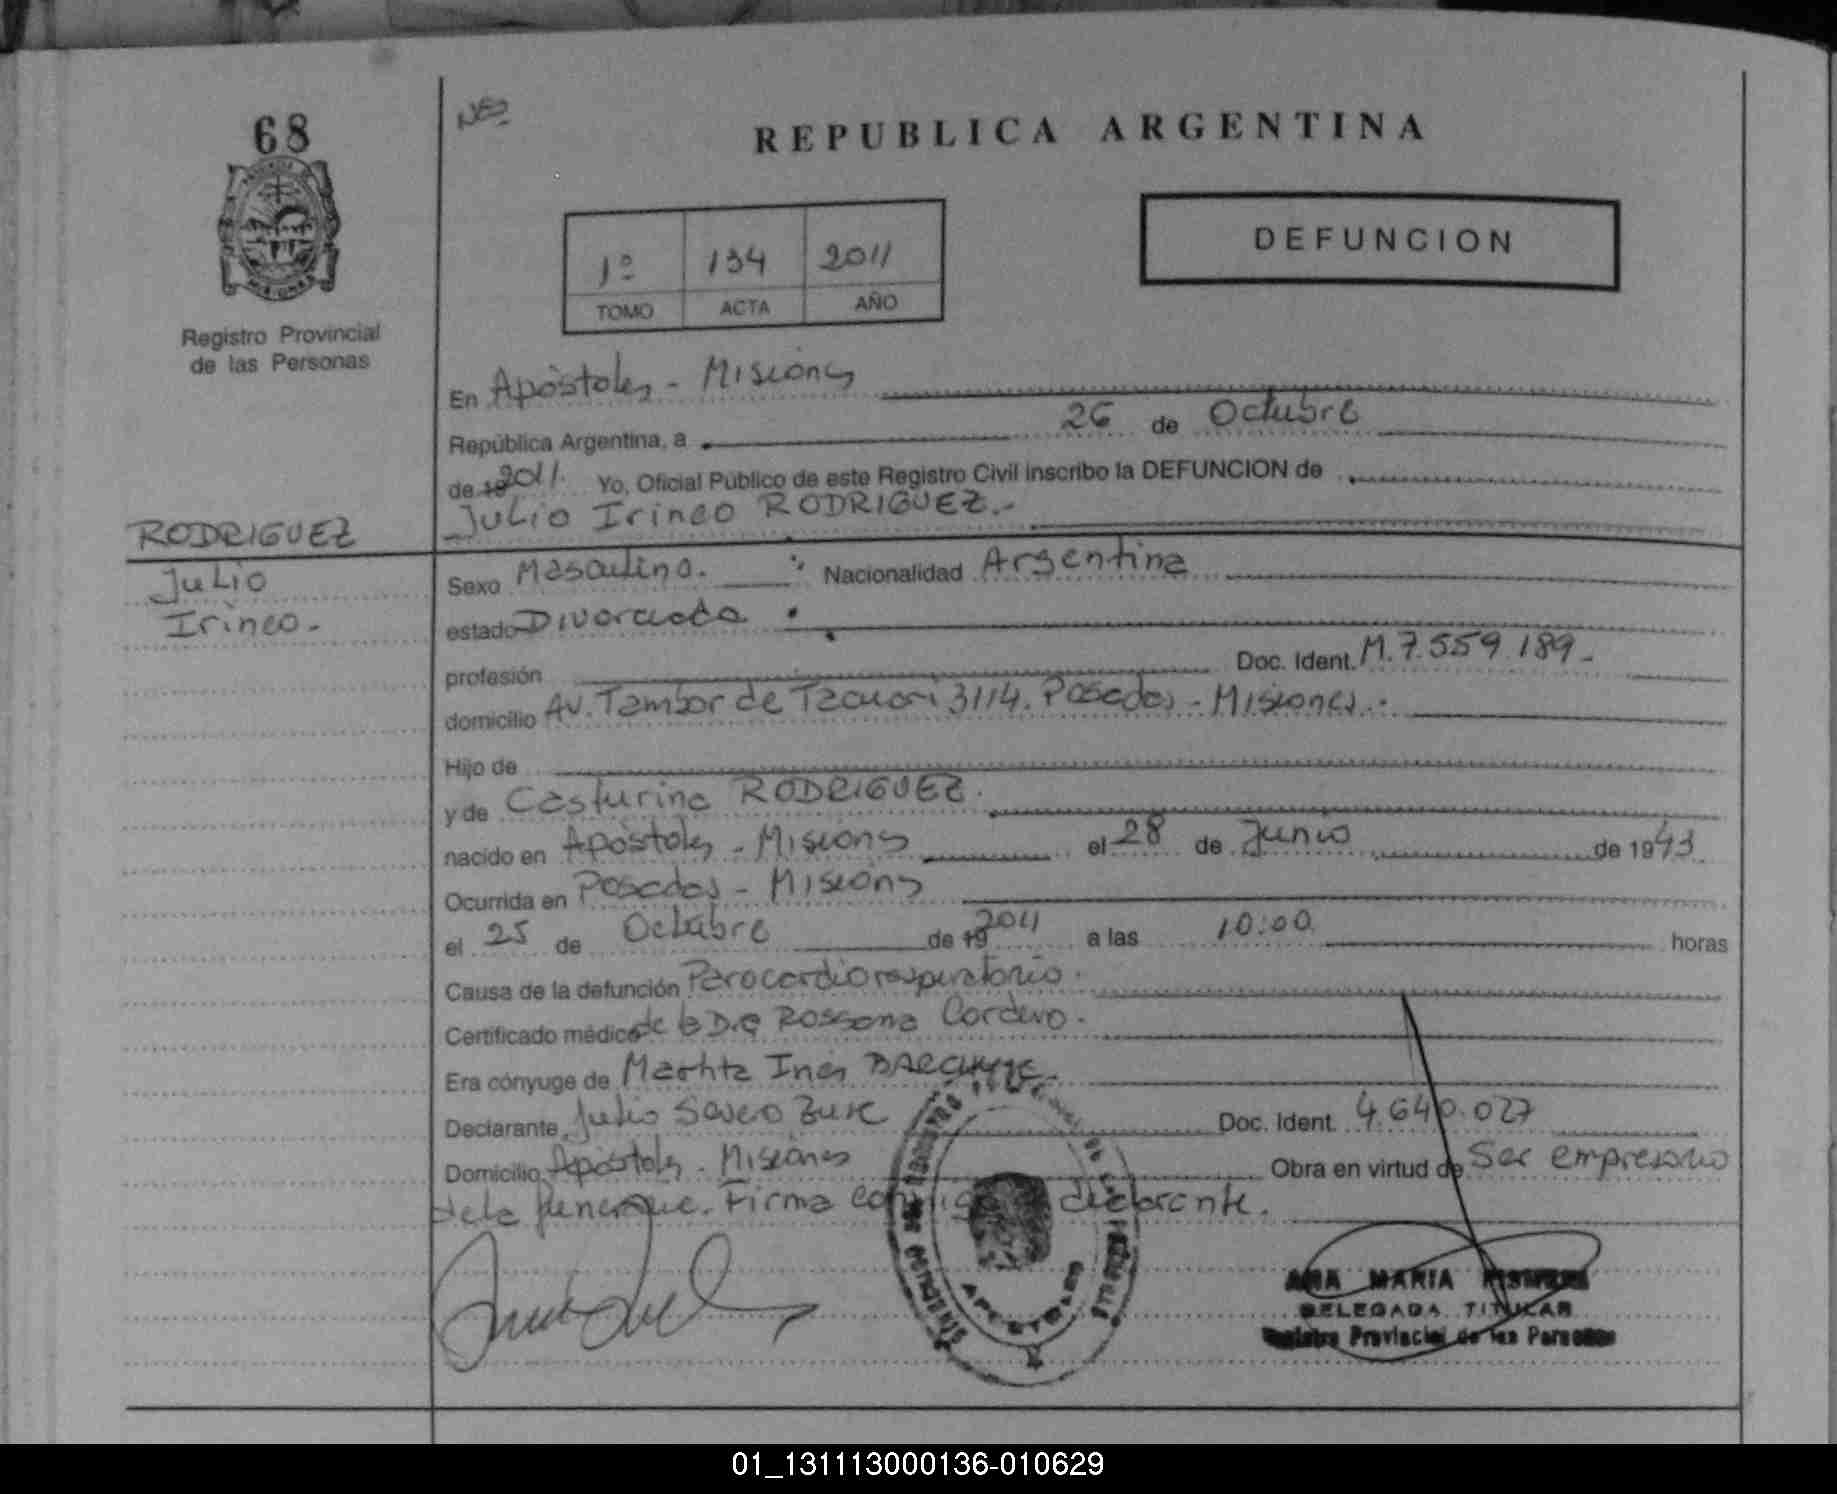 68
REPUBLICA ARGENTINA
DEFUNCION
1º 134 2011
TOMO ACTA AÑO
Registro Provincial
de las Personas
En Apóstoles - Misiones
República Argentina, a 26 de Octubre
de 19 2011. Yo, Oficial Público de este Registro Civil inscribo la DEFUNCION de
Julio Irineo RODRIGUEZ.-
RODRIGUEZ
Julio
Irineo.-
Sexo Masculino. Nacionalidad Argentina
estado Divorciado
profesión Doc. Ident. M.7.559.189-
domicilio Av. Tambor de Tacuarí 3114. Posadas - Misiones.-
Hijo de
y de Casturina RODRIGUEZ.
nacido en Apóstoles - Misiones el 28 de Junio de 1943
Ocurrida en Posadas - Misiones
el 25 de Octubre de 19 2011 a las 10:00 horas
Causa de la defunción Parocardiorespiratorio.
Certificado médico de la Dra Rossana Cordero.
Era cónyuge de Marhta Ines
Declarante Julio Severo Zuk Doc. Ident. 4.640.027
Domicilio Apóstoles - Misiones Obra en virtud de Ser empresario
de la funeraque. Firma conmigo declarante.
APOSTOLES
ANA MARIA
DELEGADA TITULAR
Registro Provincial de las Personas
01_131113000136-010629